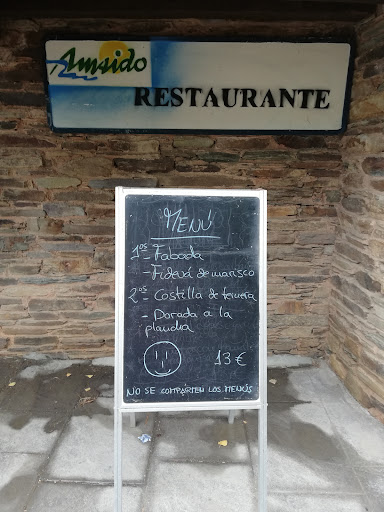 Amaido
RESTAURANTE
MENÚ
1os- Fabada
- Fideuá de marisco
2os- Costilla de ternera
- Dorada a la
plancha
13 €
NO SE COMPARTEN LOS MENÚS